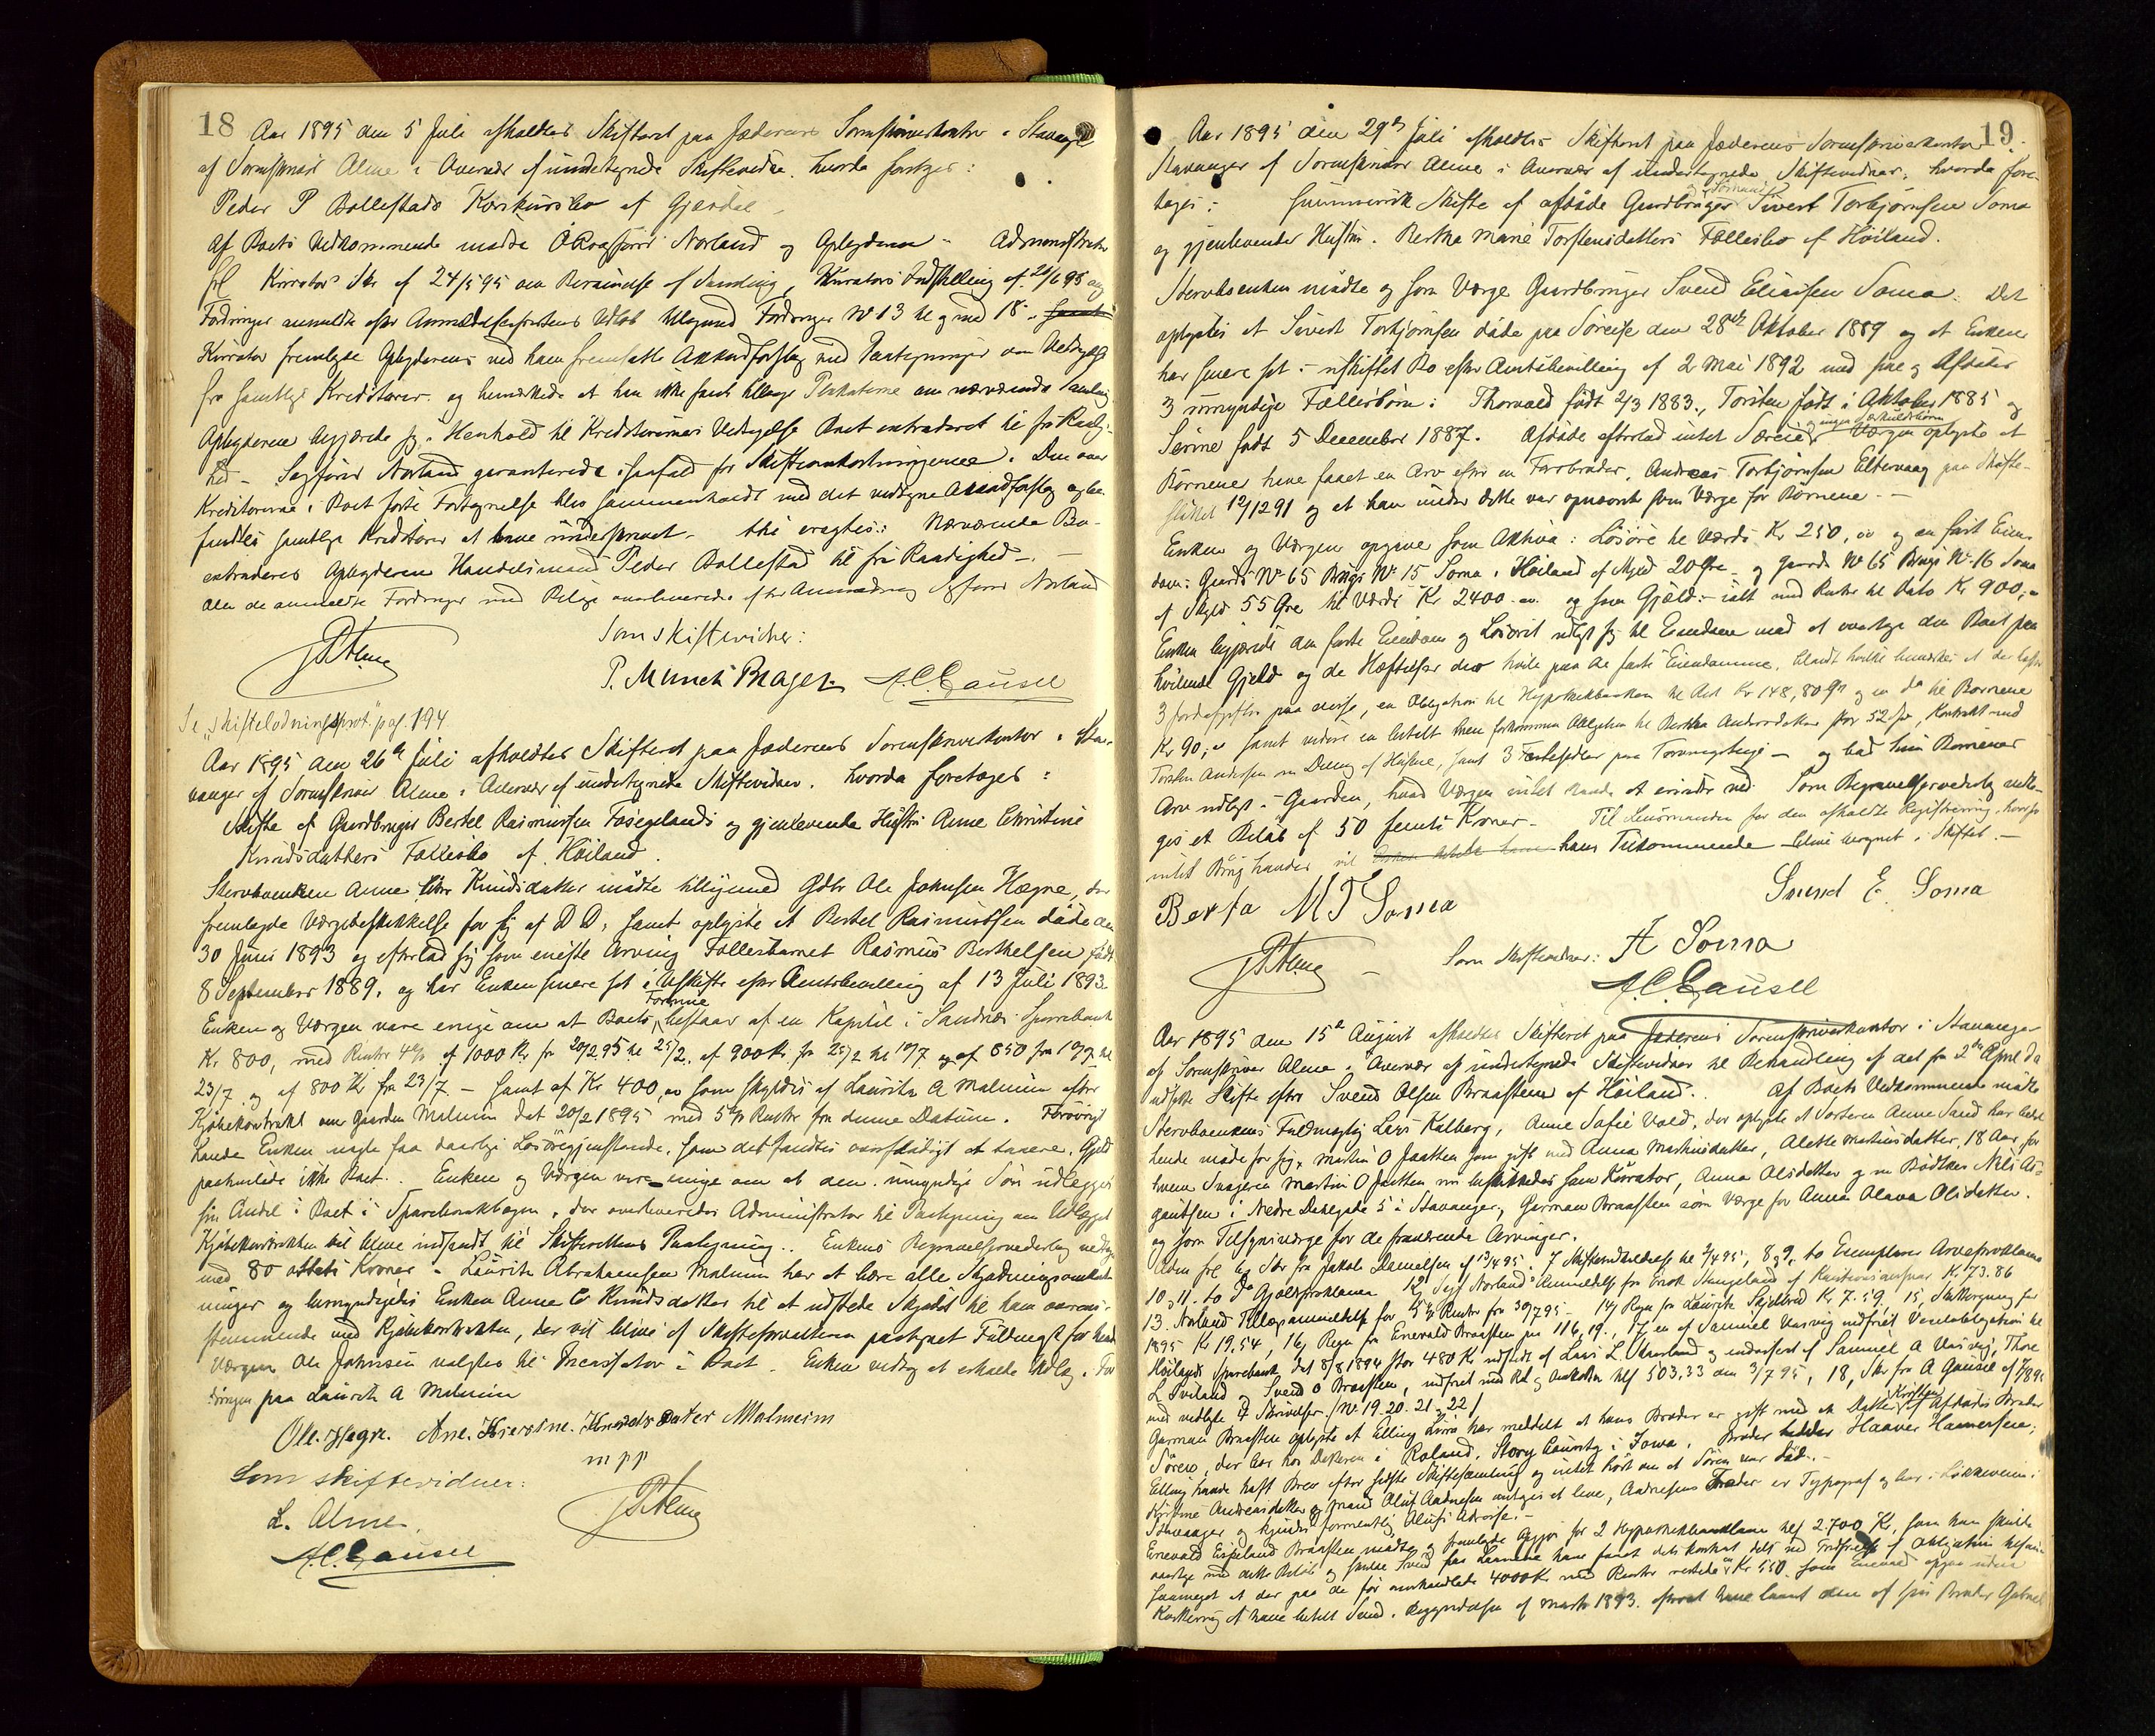 18
Aar 1895 den 5 Juli afholdtes Skifteret paa Jæderens Sorenskriverkontor i Stavanger
af Sorenskriver Alme i Overvær af undertegnede Skiftevidner. Hvorda foretages:
Peder P Bollestads Konkursbo af Gjesdal
Af Boets Vedkommende mødte Norland og Opbyderen. Administrator
frl Kurators Skr af 24/5 95 om Berammelse af Samling, Kurators Indstilling af 20/6 95 ang
Fordringer anmeldte efter Anmeldelsesfristens Udløb ligesaa Fordringer No 13 til og med 18.
Kurator fremlagde Opbyderens ved ham fremsatte Akkordforslag med Paategninger om Vedtagelse
fra samtlige Kreditorer og bemærkede at han ikke fandt tillige Plakaterne om nærværende Samling
Opbyderen begjærede sig i Henhold til Kreditorernes Vedtagelse Boet extraderet til fri Raadig-
hed. Sagfører Norland garanterede isaafald for Skifteomkostningerne. Den over
Kreditorerne i Boet førte Fortegnelse blev sammenholdt med det vedtagne Akkordforslag og be-
fandtes samtlige Kreditorer at have underskrevet. thi eragtes: Nærværende Bo
extraderes Opbyderen Handelsmand Peder Bollestad til fri Raadighed.
Alle de anmeldte Fordringer med Bilage overleveredes efter Anmodning Sagfører Norland
Som skiftevidner:
P. Munch Brager A.C. Gausel
Se „Skifteslodningsprot." pag. 194
Aar 1895 den 26de Juli afholdtes Skifteret paa Jæderens Sorenskriverkontor i Sta-
vanger af Sorenskriver Alme i Overvær af undertegnede Skiftevidner. Hvorda foretoges:
Skifte af Gaardbruger Bertel Rasmussen Fosegelands og gjenlevende Hustru Anne Christine
Knudsdatters Fællesbo af Höiland.
Stervboenken Anne Knudsdatter mødte tilligemed Gdbr Ole Johnsen Hægre, der
fremlagde Værgebeskikkelse for sig af D D, samt oplyste at Bertel Rasmussen døde den
30 Juni 1893 og efterlod sig som eneste Arving Fællesbarnet Rasmus Berthelsen født
8 September 1889, og har Enken senere sat i Uskifte efter Amtsbevilling af 13 Juli 1893.
Enken og Værgen vare enige om at Boets Formue bestaar af en Kapital i Sandnes Sparebank
Kr. 800, med Renter 4% af 1000 Kr. fra 20/2 95 til 25/2. af 900 Kr fra 25/2 til 10/7 og af 850 fra 10/7 til
23/7. og af 800 Kr fra 23/7 – samt af Kr. 400,00 som skyldes af Lauritz A Malmin efter
Kjøbekontrakt om Gaarden Malmin dat 20/2 1895 med 5% Renter fra denne Datum. Forøvrigt
havde Enken nogle faa daarlige Løsøregjenstande, som det fandtes overflødigt at taxere. Gjeld
paahvilede ikke Boet. Enken og Værgen var enige om at den umyndige Søn udlægges
sin Andel i Boet i Sparebankbogen, der overleveredes Administrator til Paategning om Udlægget
Kjøbekontrakten vil blive indsendt til Skifterettens Paategning. Enkens Begravelsesvederlag vedtoges
med 80 otteti Kroner. Lauritz Abrahamsen Malmin har at bære alle Skjødningsomkost-
ninger og bemyndigedes Enken Anne C Knudsdatter til at udstede Skjødet til ham overens-
stemmende med Kjøbekontrakten, der vil blive af Skifteforvalteren paategnet Fuldmagt for hende
Værgen Ole Johnsen valgtes til Incassator i Boet. Enken vedtog at erholde Udlæg i For-
dringen paa Lauritz A Malmin
Ole. Hegre. Ane. Kierstine. Knuds Dater Malmeim
m p p
Som skiftevidner:
L. Alme.
A.C. Gausel
19
Aar 1895 den 29de Juli afholdtes Skifteret paa Jæderens Sorenskriverkontor i
Stavanger af Sorenskriver Alme i Overvær af undertegnede Skiftevidner, hvorda fore-
toges: Summarisk Skifte af afdøde Gaardbruger og Sømand Sivert Torbjørnsen Soma
og gjenlevende Hustru Bertha Marie Torstensdatters Fællesbo af Höiland.
Stervboenken mødte og som Værge Gaardbruger Svend Eliassen Soma. Det
oplystes at Sivert Torbjørnsen døde paa Søreise den 28de Oktober 1889 og at Enken
har senere sat i uskiftet Bo efter Amtsbevilling af 2 Mai 1892 med sine og Afdødes
3 umyndige Fællesbørn: Thorvald født 2/3 1883., Torsten født i Oktober 1885 og
Serine født 5 December 1887. Afdøde efterlod intet Særeie og ingen Særkuldsbørn. Værgen oplyste at
Børnene have faaet en Arv efter en Farbroder, Andreas Torbjørnsen Eltervaag paa Skifte-
sluttet 12/12 91 og at han under dette var opnævnt som Værge for Børnene.
Enken og Værgen opgave som Aktiva: Løsøre til Værdi Kr 250,00 og en fast Eien-
dom: Gaards No 65 Brugs No 15 Soma i Höiland af Skyld 20 Øre og Gaards No 65 Brugs No. 16 Soma
af Skyld 55 Øre til Værdi Kr 2400.00 og som Gjæld: ialt med Renter til Dato Kr 900,00
Enken begjærede den faste Eiendom og Løsøret udlagt sig til Eiendom mod at overtage den Boet paa
hvilende Gjeld og de Heftelser der hvile paa de faste Eiendomme, blandt hvilke bemærkes at der hefter
3 paa disse, en Obligation til Hypothekbanken til Rest Kr 148,80 Øre og en do til Børnene
Kr. 90,00 samt videre en betalt men forkommen Obligation til Bertha Andersdatter stor 52 Spd, Kontrakt med
Torsten Andersen om Deling af Husene, samt 3 Fæstesedler paa Torvmyrteig – og bad hun Børnenes
Arv udlagt i Gaarden, hvad Værgen intet havde at erindre ved. Som Begravelsesvederlag vedto-
ges et Beløb af 50 femti Kroner. Til Lensmanden for den afholdte Registrering, hvorfor
intet Brug havdes vil hans Tilkommende blive beregnet i Skiftet.
Berta M T Soma Svend E. Soma
Som Skiftevidner: A Soma
A.C. Gausel
Aar 1895 den 15de August afholdtes Skifteret paa Jæderens Sorenskriverkontor i Stavanger
af Sorenskriver Alme i Overvær af undertegnede Skiftevidner til Behandling af det fra 2den April da
udsatte Skifte efter Svend Olsen Braasten af Höiland. Af Boets Vedkommende mødte
Stervboenkens Fuldmægtig Lars Kalberg, Anne Sofie Vold, der oplyste at Søsteren Anne Sand har bedet
hende møde for sig, Martin O Jaatten som gift med Anna Martinsdatter, Alette Martinsdatter, 18 Aar, for
hvem Svogeren Martin O Jaatten nu beskikkedes som Kurator, Anna Olsdatter og nu Bødker Nils As-
gautsen i Nedre Dalegade 5 i Stavanger, German Braasten som Værge for Anna Olava Olsdatter.
og som Tilsynsværge for de fraværende Arvinger.
Adm frl 6, Skr fra Jakob Danielsen af 13/4 95. 7 Skifteindkaldelse til 2/4 95, 8, 9, to Exemplarer Arveproklama
10, 11. to do Gjældsproklama 12, Sagf Norlands Anmeldelse for Erik Stangeland af Kautionsansvar Kr. 73.86
13. Norland Tillægsanmeldelse for 5% Renter fra 30/7 95 – 14, Regn fra Lauritz Skjelbred Kr. 7.59, 15, Skatteregning for
1895 Kr 19,54, 16, Regn fra Enevald Braasten paa 116,19., 17, en af Samuel Varsvig indfriet Vexelobligation til
Höilands Sparebank dat 8/8 1894 stor 480 Kr udstedt af Lars L. Skaarland og endosseret af Samuel A Vasvig, Thore
L Sviland og Svend O Braasten, indfriet med Renter og Omkostn hlf 503,33 den 3/7 95, 18, Skr fra A Gausel af
med vedlagte 4 Skrivelser No 19. 20. 21. 22
German Braasten oplyste at Elling Lura har meldelt at hans Broder er gift med en Datter Kirsten af Afdødes Broder
Søren, der bor hos Datteren i Roland, Story County i Iowa. Broder hedder Haaver Haaversen;
Elling havde havt Brev efter sidste Skiftesamling og intet hørt om at Søren var død.
Kirstine Andreasdatter og Mand Oluf Andresen antages at leve, Andresens Broder er Typograf og bor i Løkkeveien i
Stavanger og kjender formentlig Olufs Adresse.
Enevald Espeland Braasten mødte og fremlagde Opgjør for 2 Hypothekbanklaan hlf 2700 Kr, som han skulde
overtage med dette Beløb og skulde Svend paa Laanene have faaet dels kontant dels ved Indfrielse af Obligation tilsammen
saameget at der paa de før omhandlede 4000 Kr med Renter restede Kr. 550, som Enevald opgav uden
Kvittering at have betalt Svend i Begyndelsen af Marts 1893. efterat have laant dem af sin Broder Gabriel